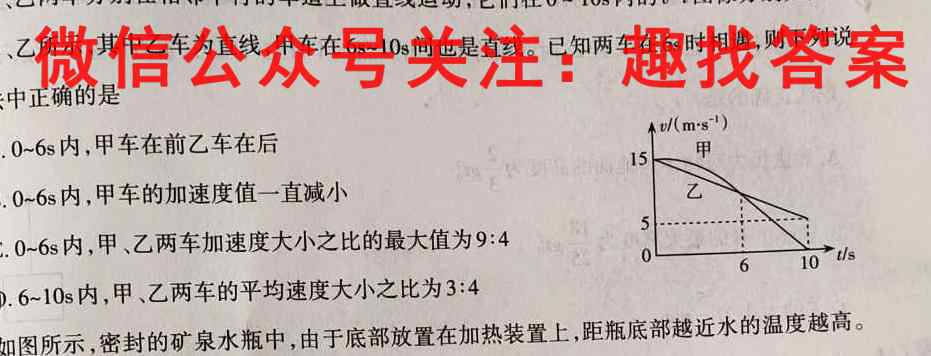 、乙两车分别在相邻平行的车道上做直线运动,它们在0~10s内的
、乙所示,其中乙车为直线,甲车在6s~10s间也是直线。已知两车在6s时相遇,则下列说
中正确的是
微信公众号关注：趣找答案
.0~6s内,甲车在前乙车在后
.0~6s内,甲车的加速度值一直减小
.0~6s内,甲、乙两车加速度大小之比的最大值为9:4
D.6~10s内,甲、乙两车的平均速度大小之比为3:4
v/(m·s⁻¹)
甲
15
乙
5
0
6
10
t/s
如图所示,密封的矿泉水瓶中,由于底部放置在加热装置上,距瓶底部越近水的温度越高。